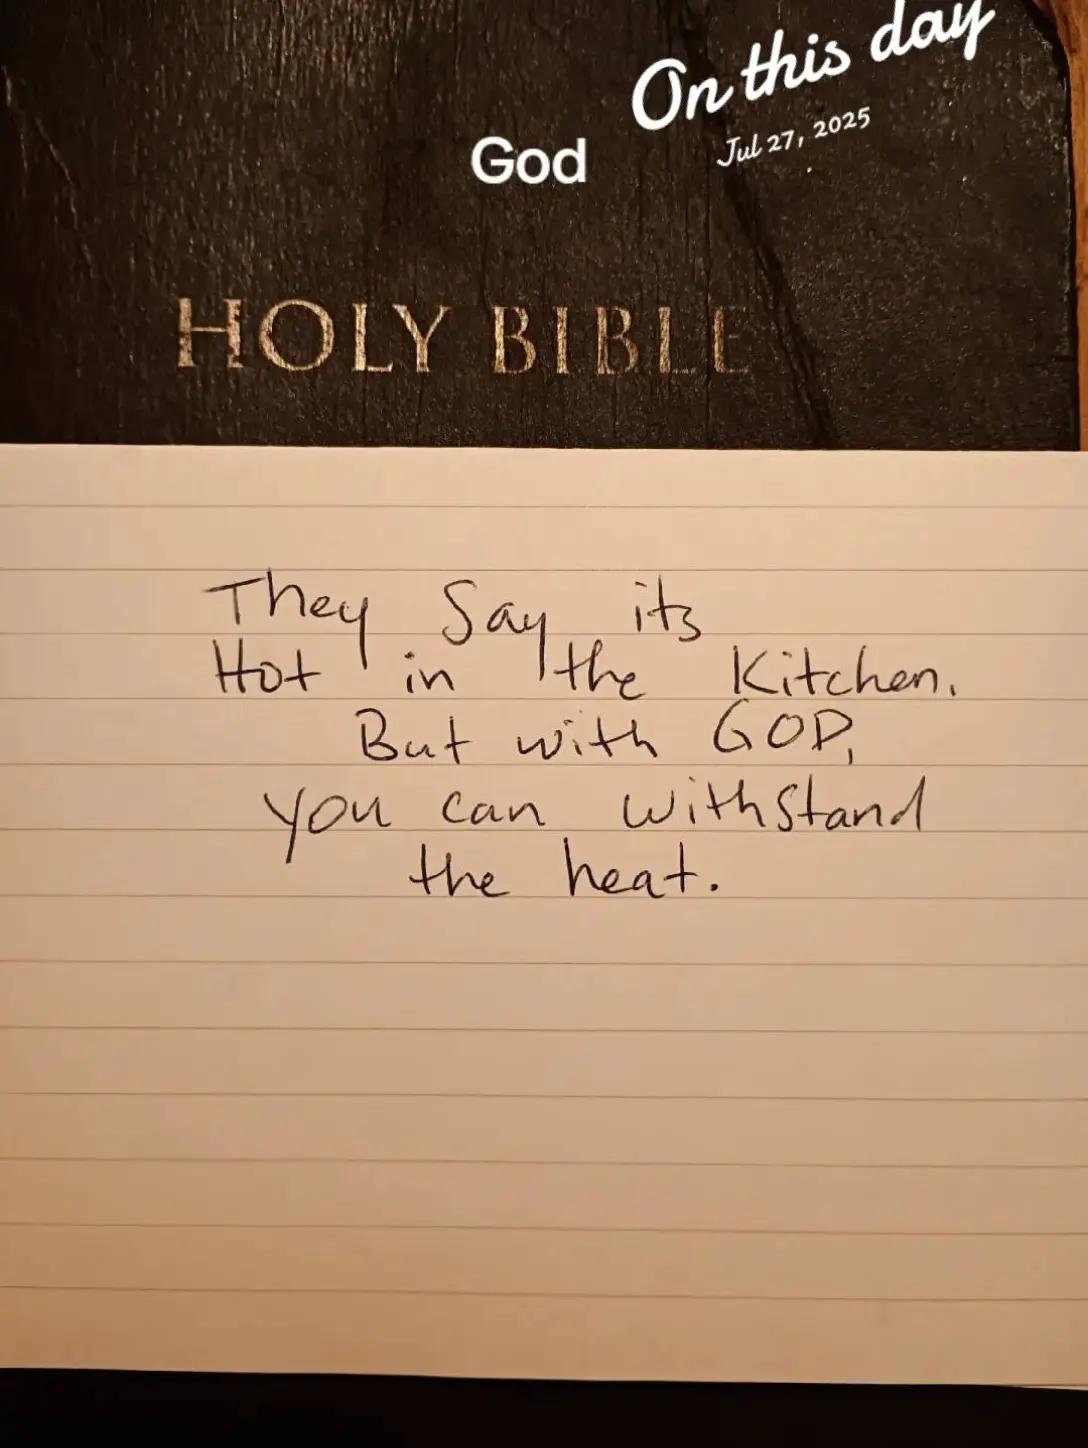 On this day
Jul 27, 2025
God
HOLY BIBLE
They Say its
Hot in the Kitchen.
But with GOD,
you can withstand
the heat.